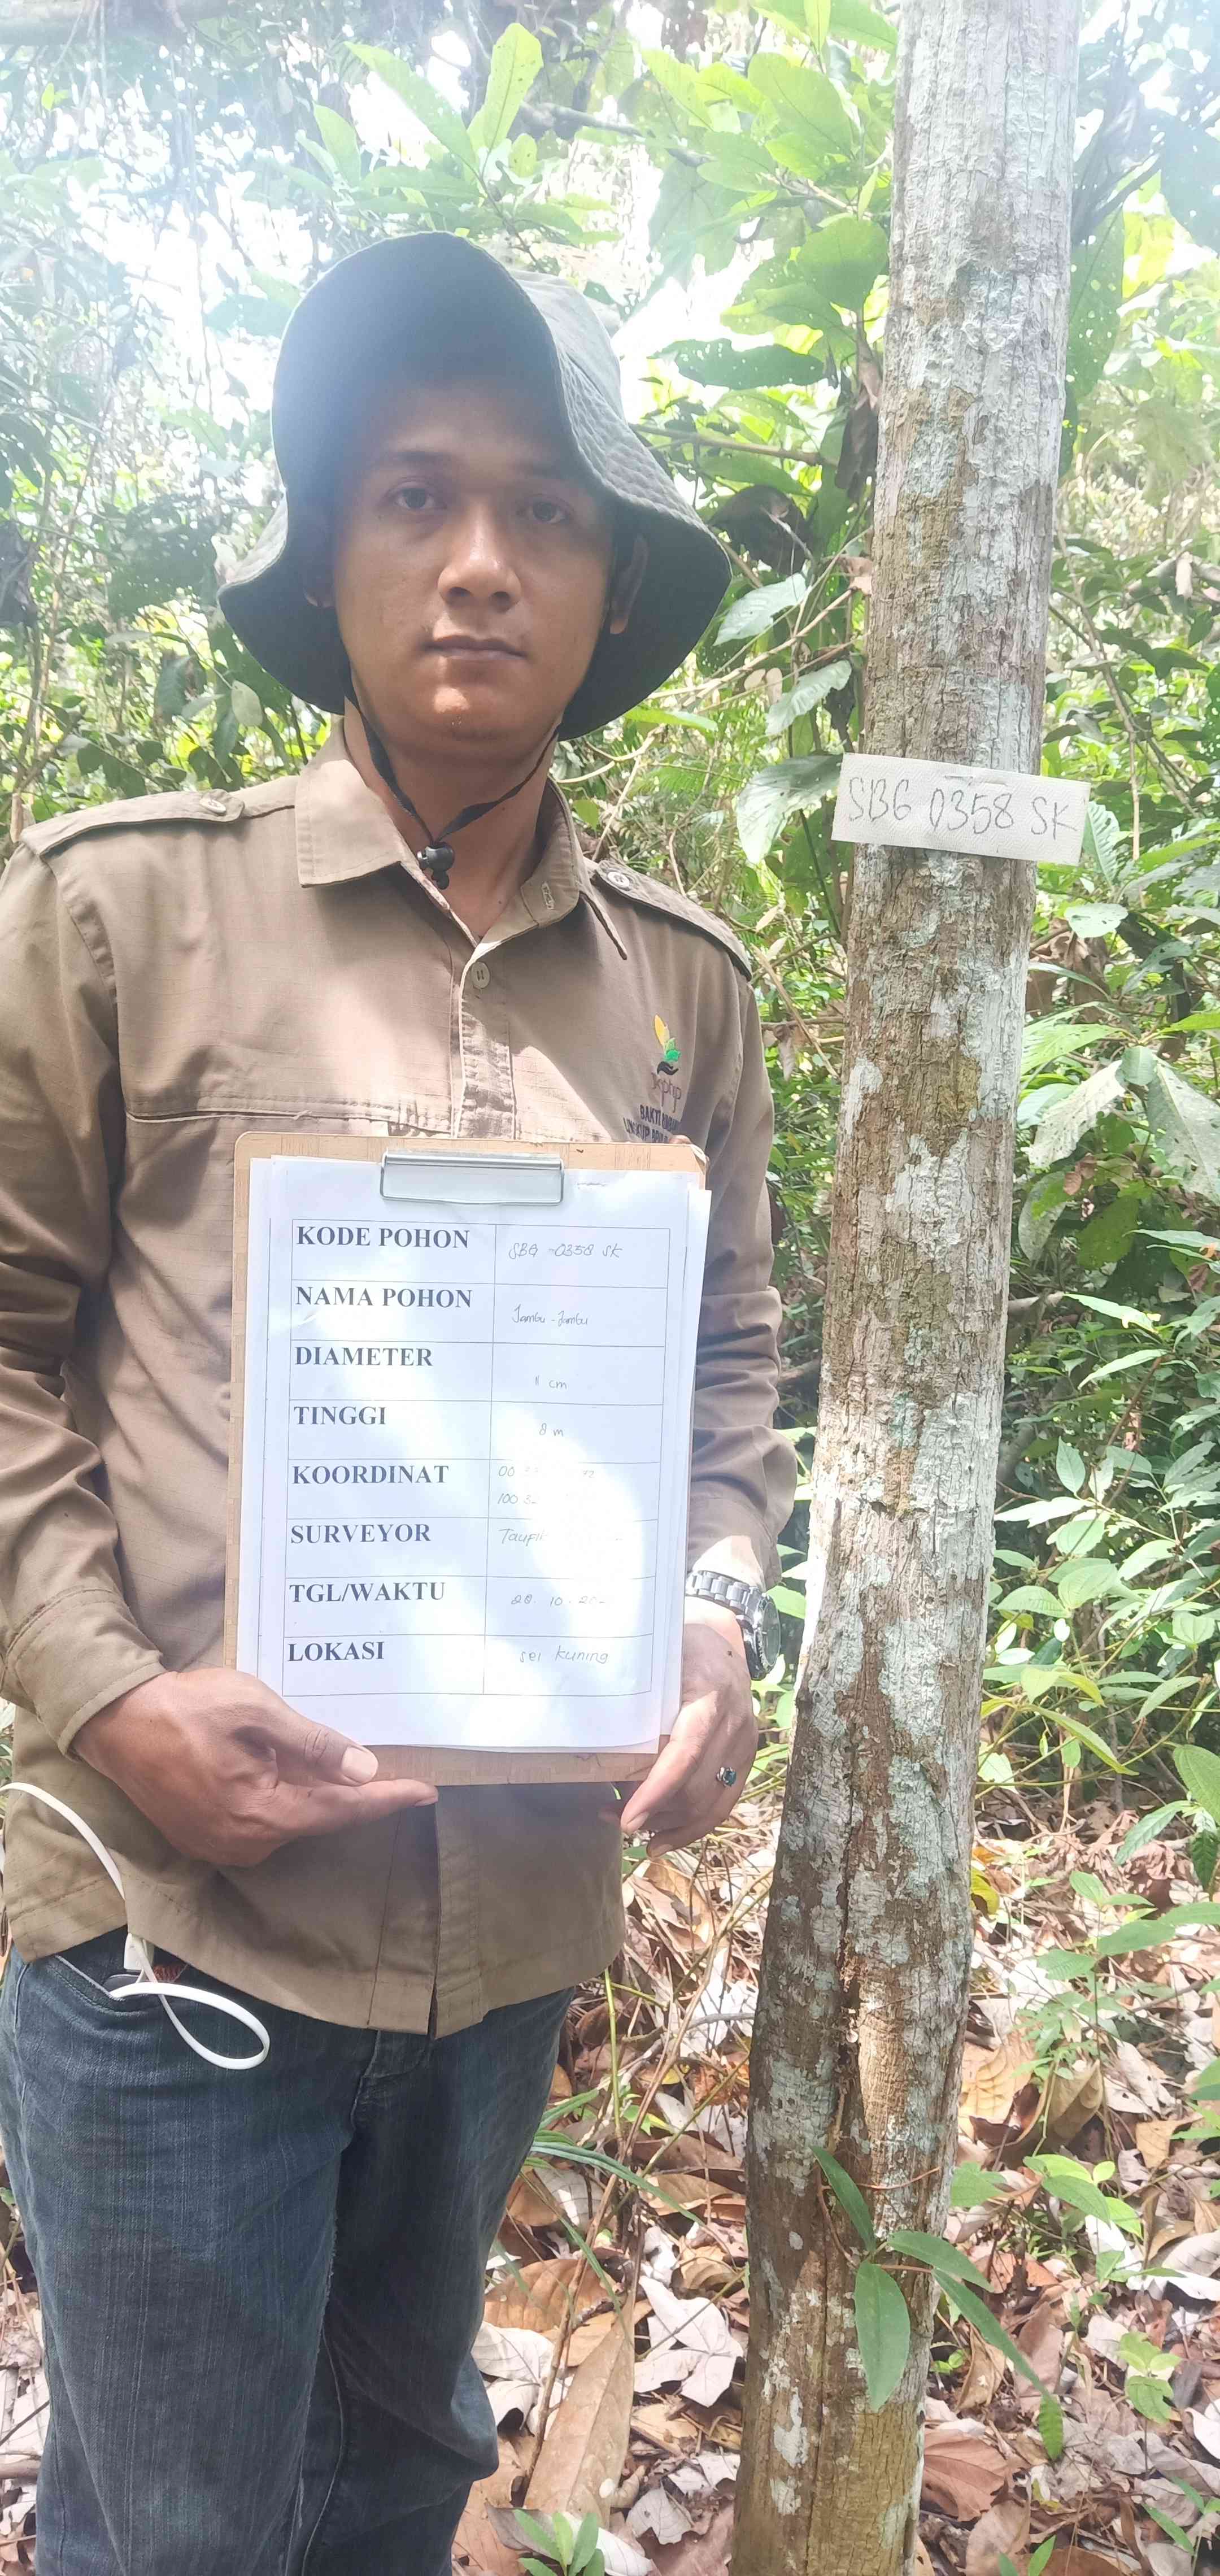 SBG 0358 SK
BAKTI
KODE POHON SBG -0358 SK
NAMA POHON Jambu - Jambu
DIAMETER 11 cm
TINGGI 8 m
KOORDINAT 00
100 32
SURVEYOR
TGL/WAKTU 28. 10.
LOKASI sei kuning